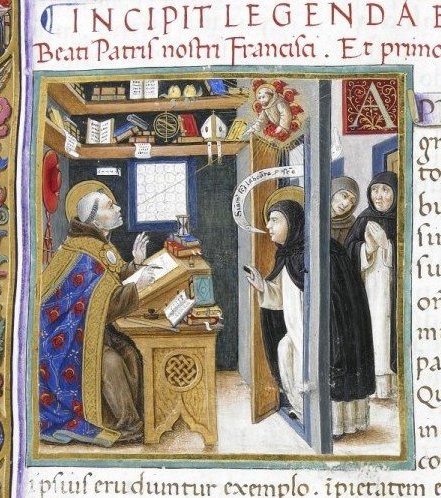 INCIPIT LEGENDA
Beati Patris nostri Francisci . Et primo
A
gr
to
bu
sin
su
or
m
pa
Qu
in
co
ipsius erudiuntur exemplo. ĩpietatem e